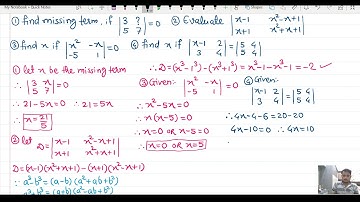 My Notebook > Quick Notes
① find missing term, if |3 ?; 5 7| = 0 ② Evaluate |x-1 x²-x+1; x+1 x²+x+1|
③ find x if |x² -x; -5 1| = 0 ④ find x if |x-1 2; 3 4| = |5 4; 5 4|
① let x be the missing term
∴ |3 x; 5 7| = 0
∴ 21-5x=0 ∴ 21=5x
∴ x = 21/5
② let D = |x-1 x²-x+1; x+1 x²+x+1|
D=(x-1)(x²+x+1) - (x+1)(x²-x+1)
∵ a³-b³ = (a-b)(a²+ab+b²)
∴ D=(x³-1³)-(x³+1³)=x³-1-x³-1=-2 ✓
③ Given: |x² -x; -5 1| = 0
∴ x²-5x=0
∴ x(x-5)=0
∴ x=0 OR x-5=0
∴ x=0 OR x=5
④ Given:
|x-1 2; 3 4| = |5 4; 5 4|
∴ 4x-4-6=20-20
∴ 4x-10=0 ∴ 4x=10
∴